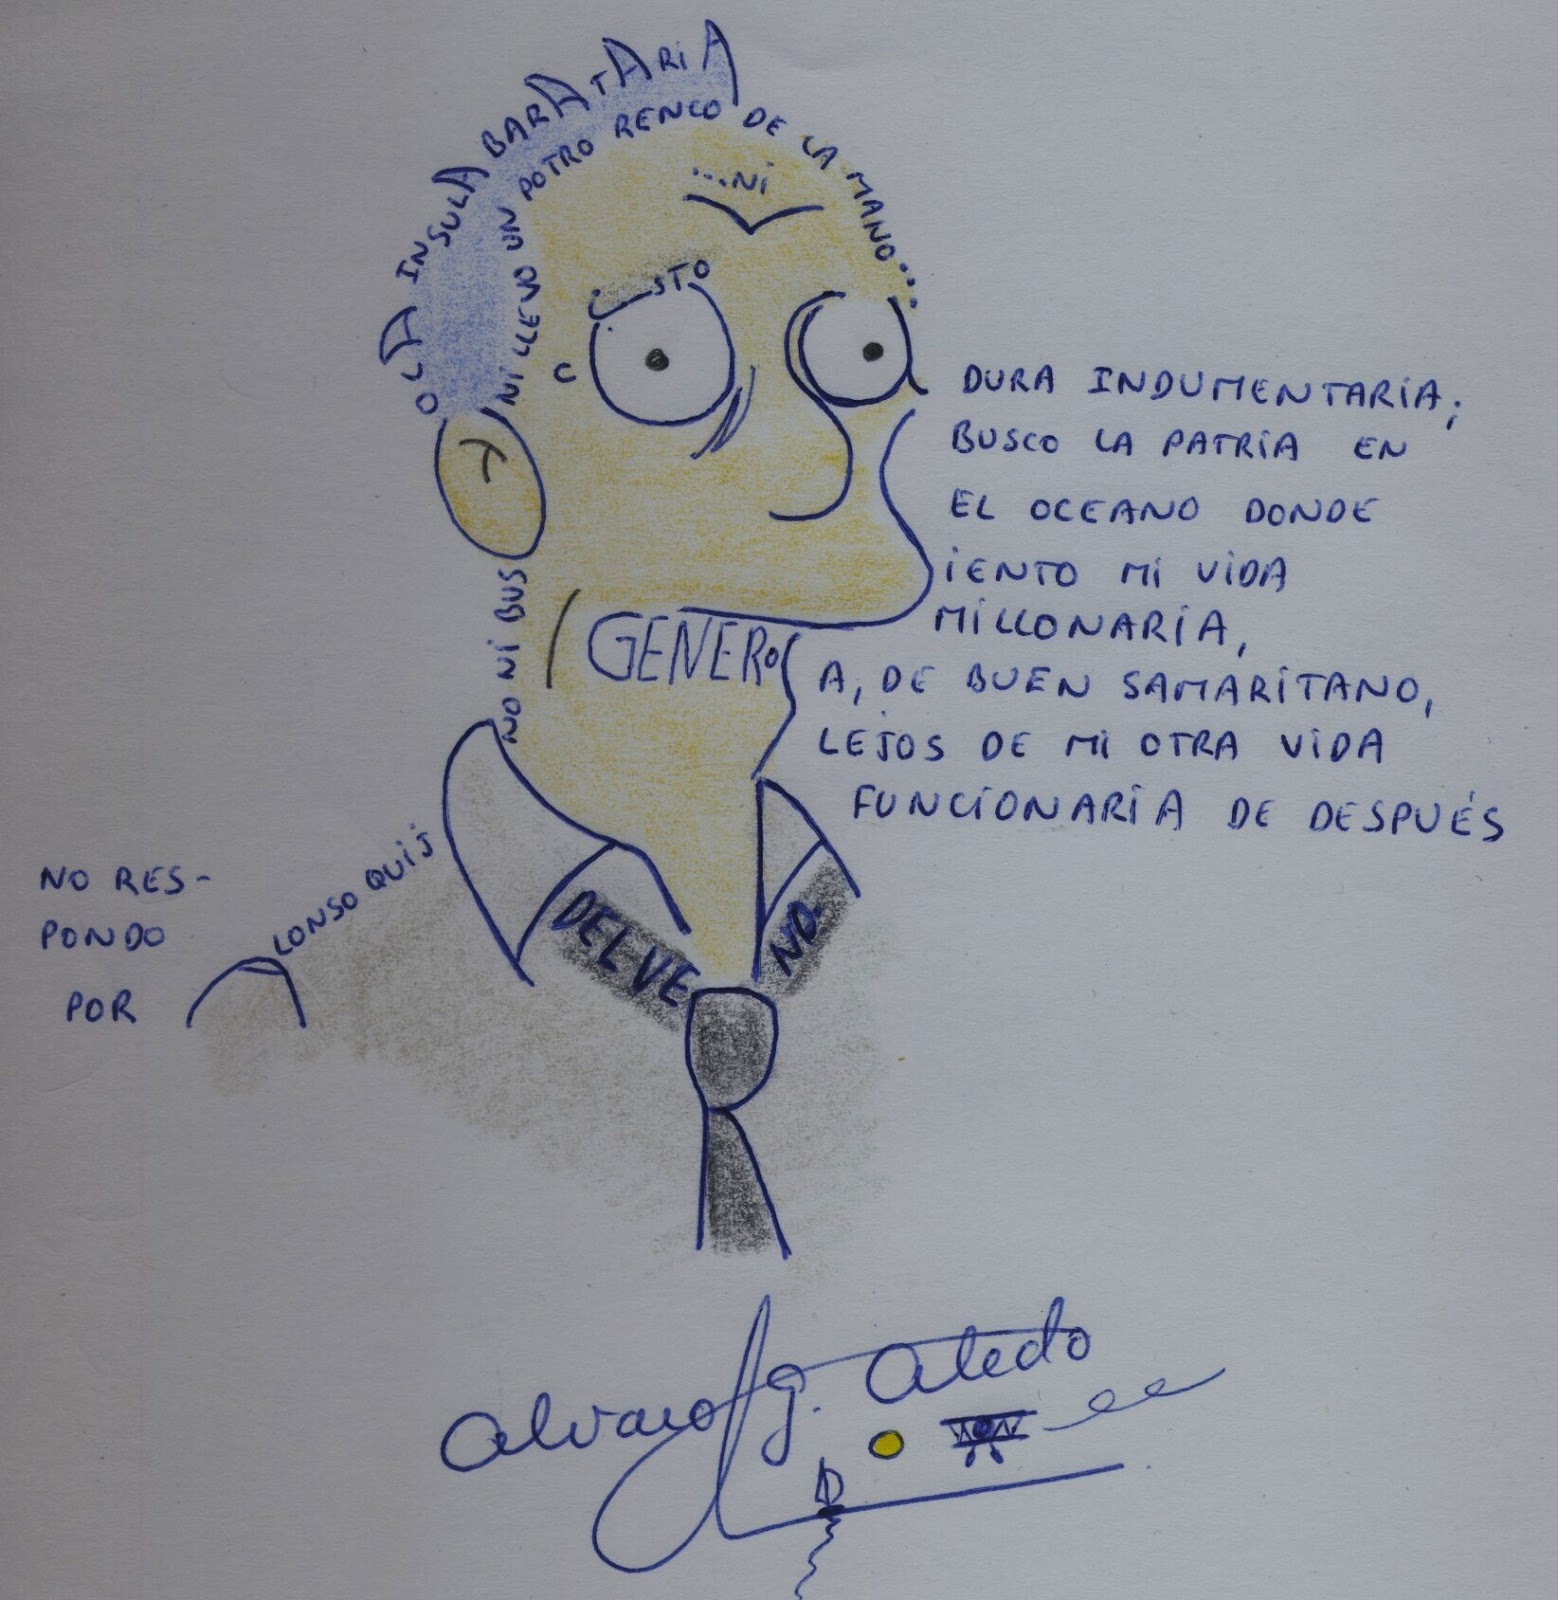 NO RES-
PONDO
POR
LONSO QUIJ
NO NI BUS
C
OLA INSULA BARATARIA
NI LLEVO UN POTRO RENCO DE LA MANO...
...NI
STO
DURA INDUMENTARIA;
BUSCO LA PATRIA EN
EL OCEANO DONDE
IENTO MI VIDA
MILLONARIA,
GENERO
A, DE BUEN SAMARITANO,
LEJOS DE MI OTRA VIDA
FUNCIONARIA DE DESPUÉS
DELVE
ND.
Alvaro G. Aledo